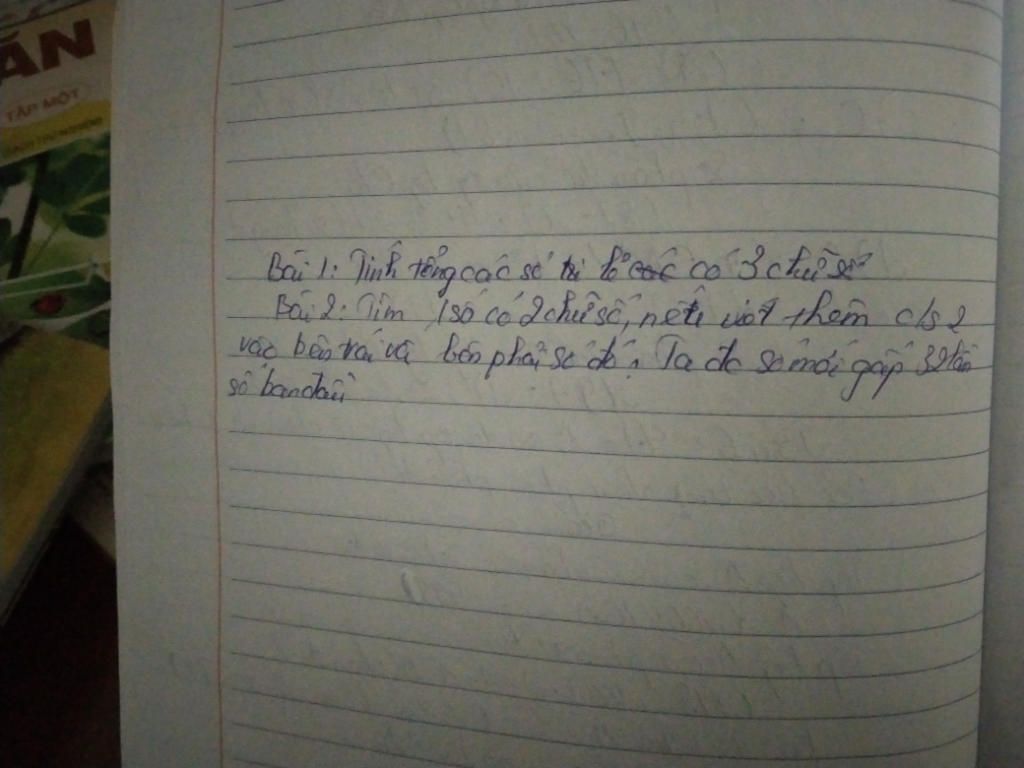 ÁN
TẬP MỘT
Bài 1: Tính tổng các số tự lẻ có 3 chữ số
Bài 2: Tìm 1 số có 2 chữ số, nếu viết thêm c/s 2
vào bên trái và bên phải số đó. Ta đc số mới gấp 32 lần
số ban đầu